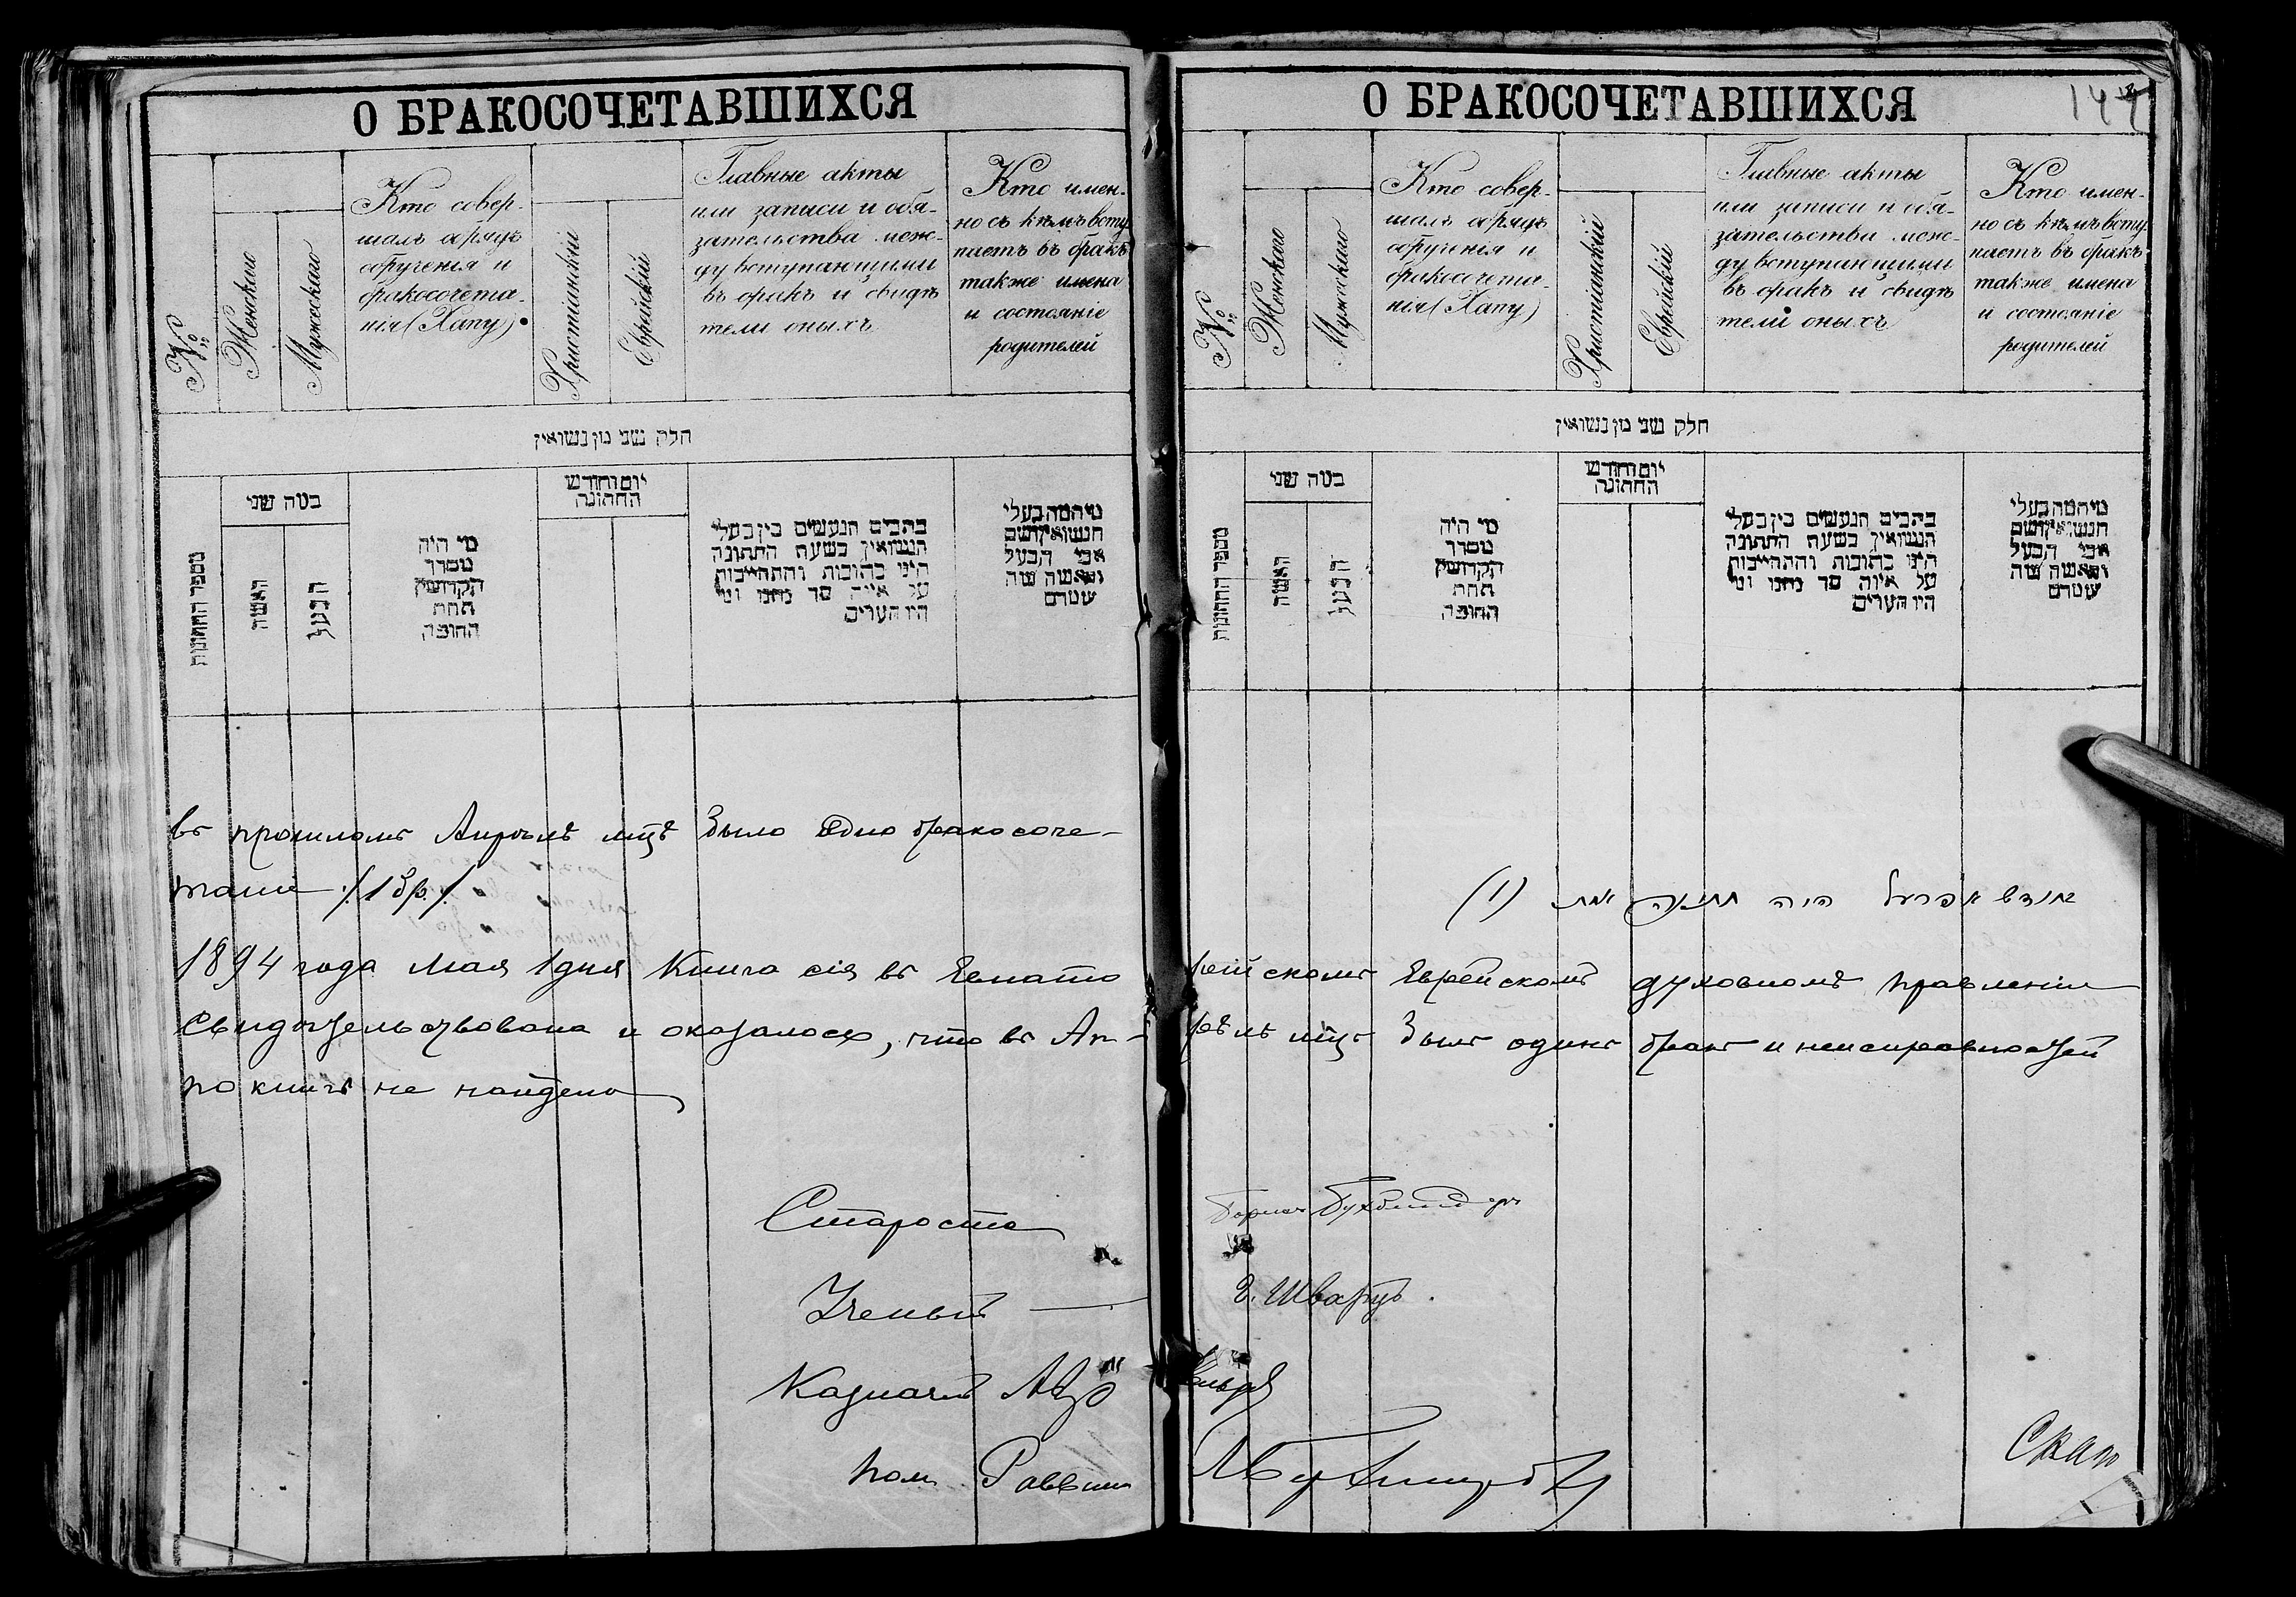 О БРАКОСОЧЕТАВШИХСЯ
№
Женскаго
Мужескаго
Кто совер-
шалъ обрядъ
обрученія и
бракосочета-
нія (Хапу)
Христіанскій
Еврейскій
Главные акты
или записи и обя-
зательства меж-
ду вступающими
въ бракъ и свидѣ
тели оныхъ
Кто имен-
но съ кѣмъ всту
паетъ въ бракъ
также имена
и состояніе
родителей
חלק שני מן נשואין
מספר החתונות
כמה שני
האשה
הבעל
מי היה
מסדר
הקדושין
תחת
החופה
יום וחודש
החתונה
כתבים הנעשים בין בעלי
הנשואין בשעת החתונה
היינו כתובות והתחייבות
על איזה סך נתנו ומי
היו העדים
מי המה בעלי
הנשואין ושם
אבי הבעל
והאשה
въ прошломъ Апрѣлѣ мцѣ было Одно бракосоче-
таніе /1 бр./
1894 года Мая 1 дня Книга сія въ Евпато
Свидѣтельствована и оказалось, что въ Ап-
по книгѣ не найдено
Староста
Ученый
Казначей
Пом. Раввин
О БРАКОСОЧЕТАВШИХСЯ
№
Женскаго
Мужескаго
Кто совер-
шалъ обрядъ
обрученія и
бракосочета-
нія (Хапу)
Христіанскій
Еврейскій
Главные акты
или записи и обя-
зательства меж-
ду вступающими
въ бракъ и свидѣ
тели оныхъ
Кто имен-
но съ кѣмъ всту
паетъ въ бракъ
также имена
и состояніе
родителей
חלק שני מן נשואין
מספר החתונות
כמה שני
האשה
הבעל
מי היה
מסדר
הקדושין
תחת
החופה
יום וחודש
החתונה
כתבים הנעשים בין בעלי
הנשואין בשעת החתונה
היינו כתובות והתחייבות
על איזה סך נתנו ומי
היו העדים
מי המה בעלי
הנשואין ושם
אבי הבעל
והאשה
חודש אפרעל היה חתונה אחת (1)
рійскомъ Еврейскомъ духовномъ правленіи
рѣлѣ мцѣ былъ одинъ бракъ и неисправностей
Шварцъ